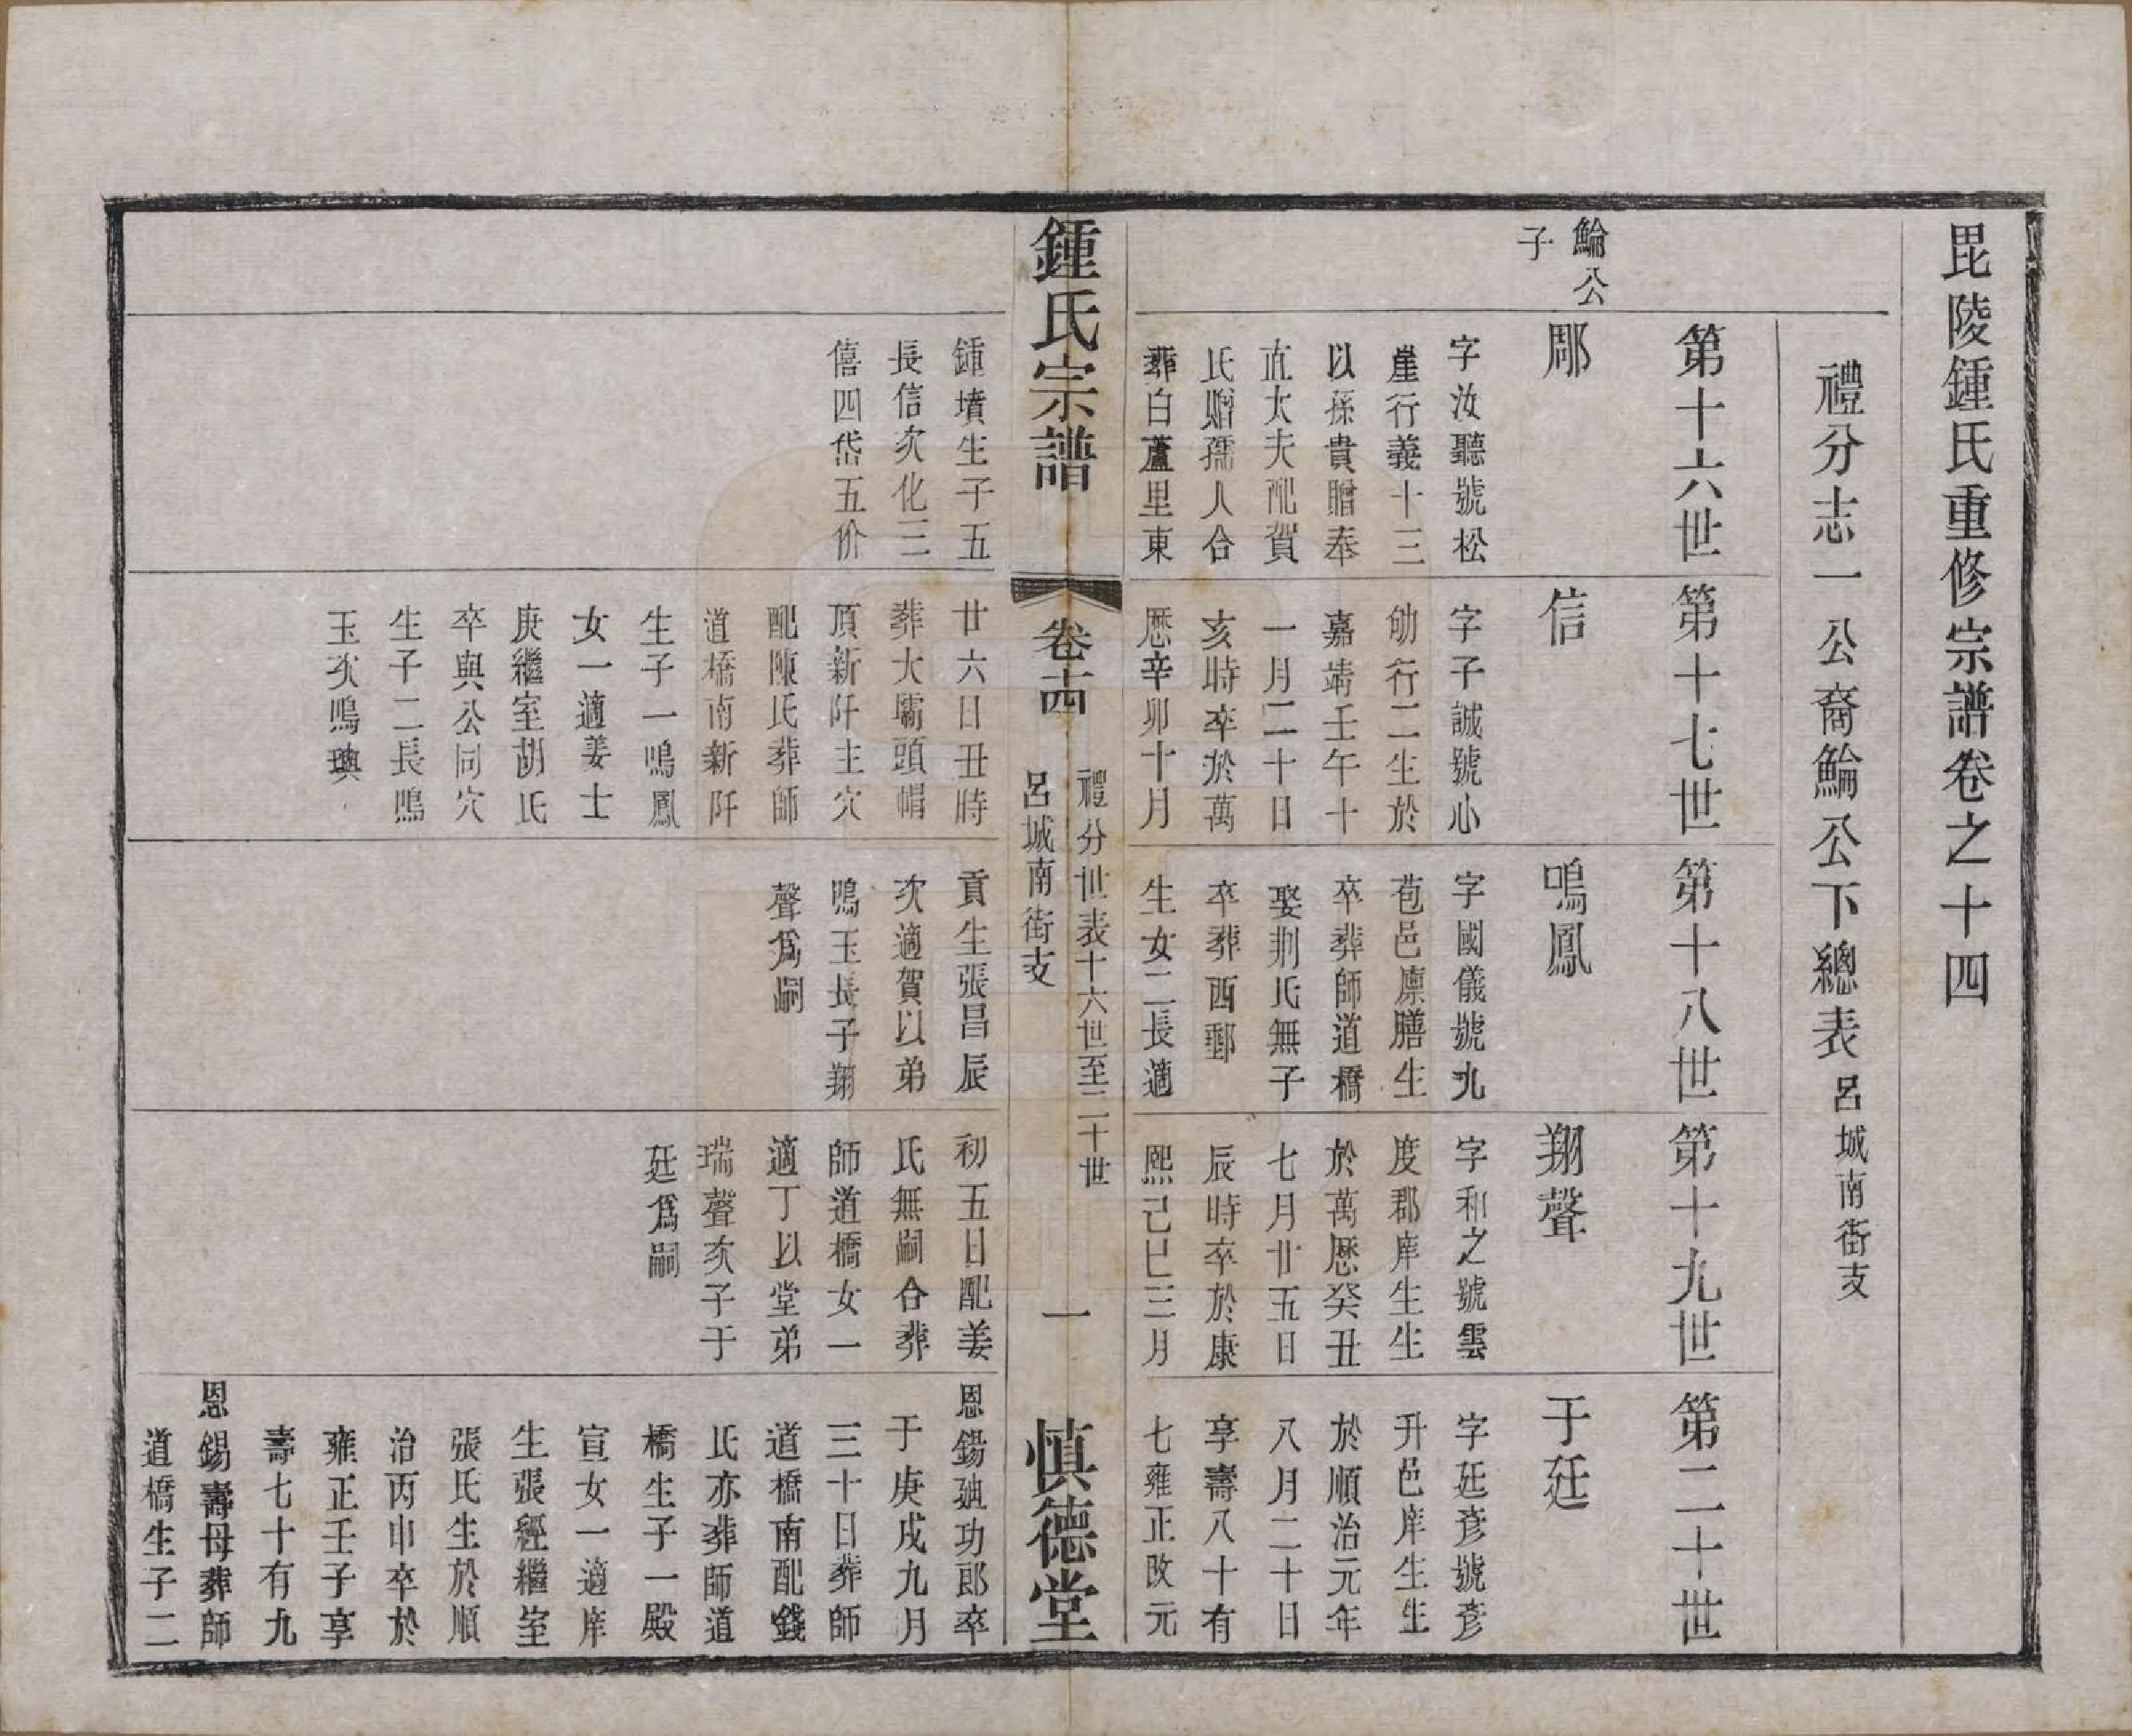 毘陵鍾氏重修宗譜卷之十四
禮分志一公裔鯩公下總表 呂城南街支
鯩公
子
第十六世
郿
字汝聽號松
崖行義十三
以孫貴贈奉
直大夫配賀
氏贈孺人合
葬白蘆里東
第十七世
信
字子誠號心
劬行二生於
嘉靖壬午十
一月二十日
亥時卒於萬
歷辛卯十月
第十八世
鳴鳳
字國儀號九
苞邑廪膳生
卒葬師道橋
娶荆氏無子
卒葬西郵
生女二長適
第十九世
翔聲
字和之號雲
度郡庠生生
於萬歷癸丑
七月廿五日
辰時卒於康
熙己巳三月
第二十世
于廷
字廷彥號彥
升邑庠生生
於順治元年
八月二十日
享壽八十有
七雍正改元
鍾氏宗譜
卷十四
禮分世表十六世至二十世
呂城南街支
一
慎德堂
鍾墳生子五
長信次化三
僖四岱五价
廿六日丑時
葬大壩頭帽
頂新阡主穴
配陳氏葬師
道橋南新阡
生子一鳴鳳
女一適姜士
庚繼室胡氏
卒與公同穴
生子二長鳴
玉次鳴璵
貢生張昌辰
次適賀以弟
鳴玉長子翔
聲爲嗣
初五日配姜
氏無嗣合葬
師道橋女一
適丁以堂弟
瑞聲次子于
廷爲嗣
恩錫廸功郎卒
于庚戌九月
三十日葬師
道橋南配錢
氏亦葬師道
橋生子一殿
宣女一適庠
生張經繼室
張氏生於順
治丙申卒於
雍正壬子享
壽七十有九
恩錫壽母葬師
道橋生子二